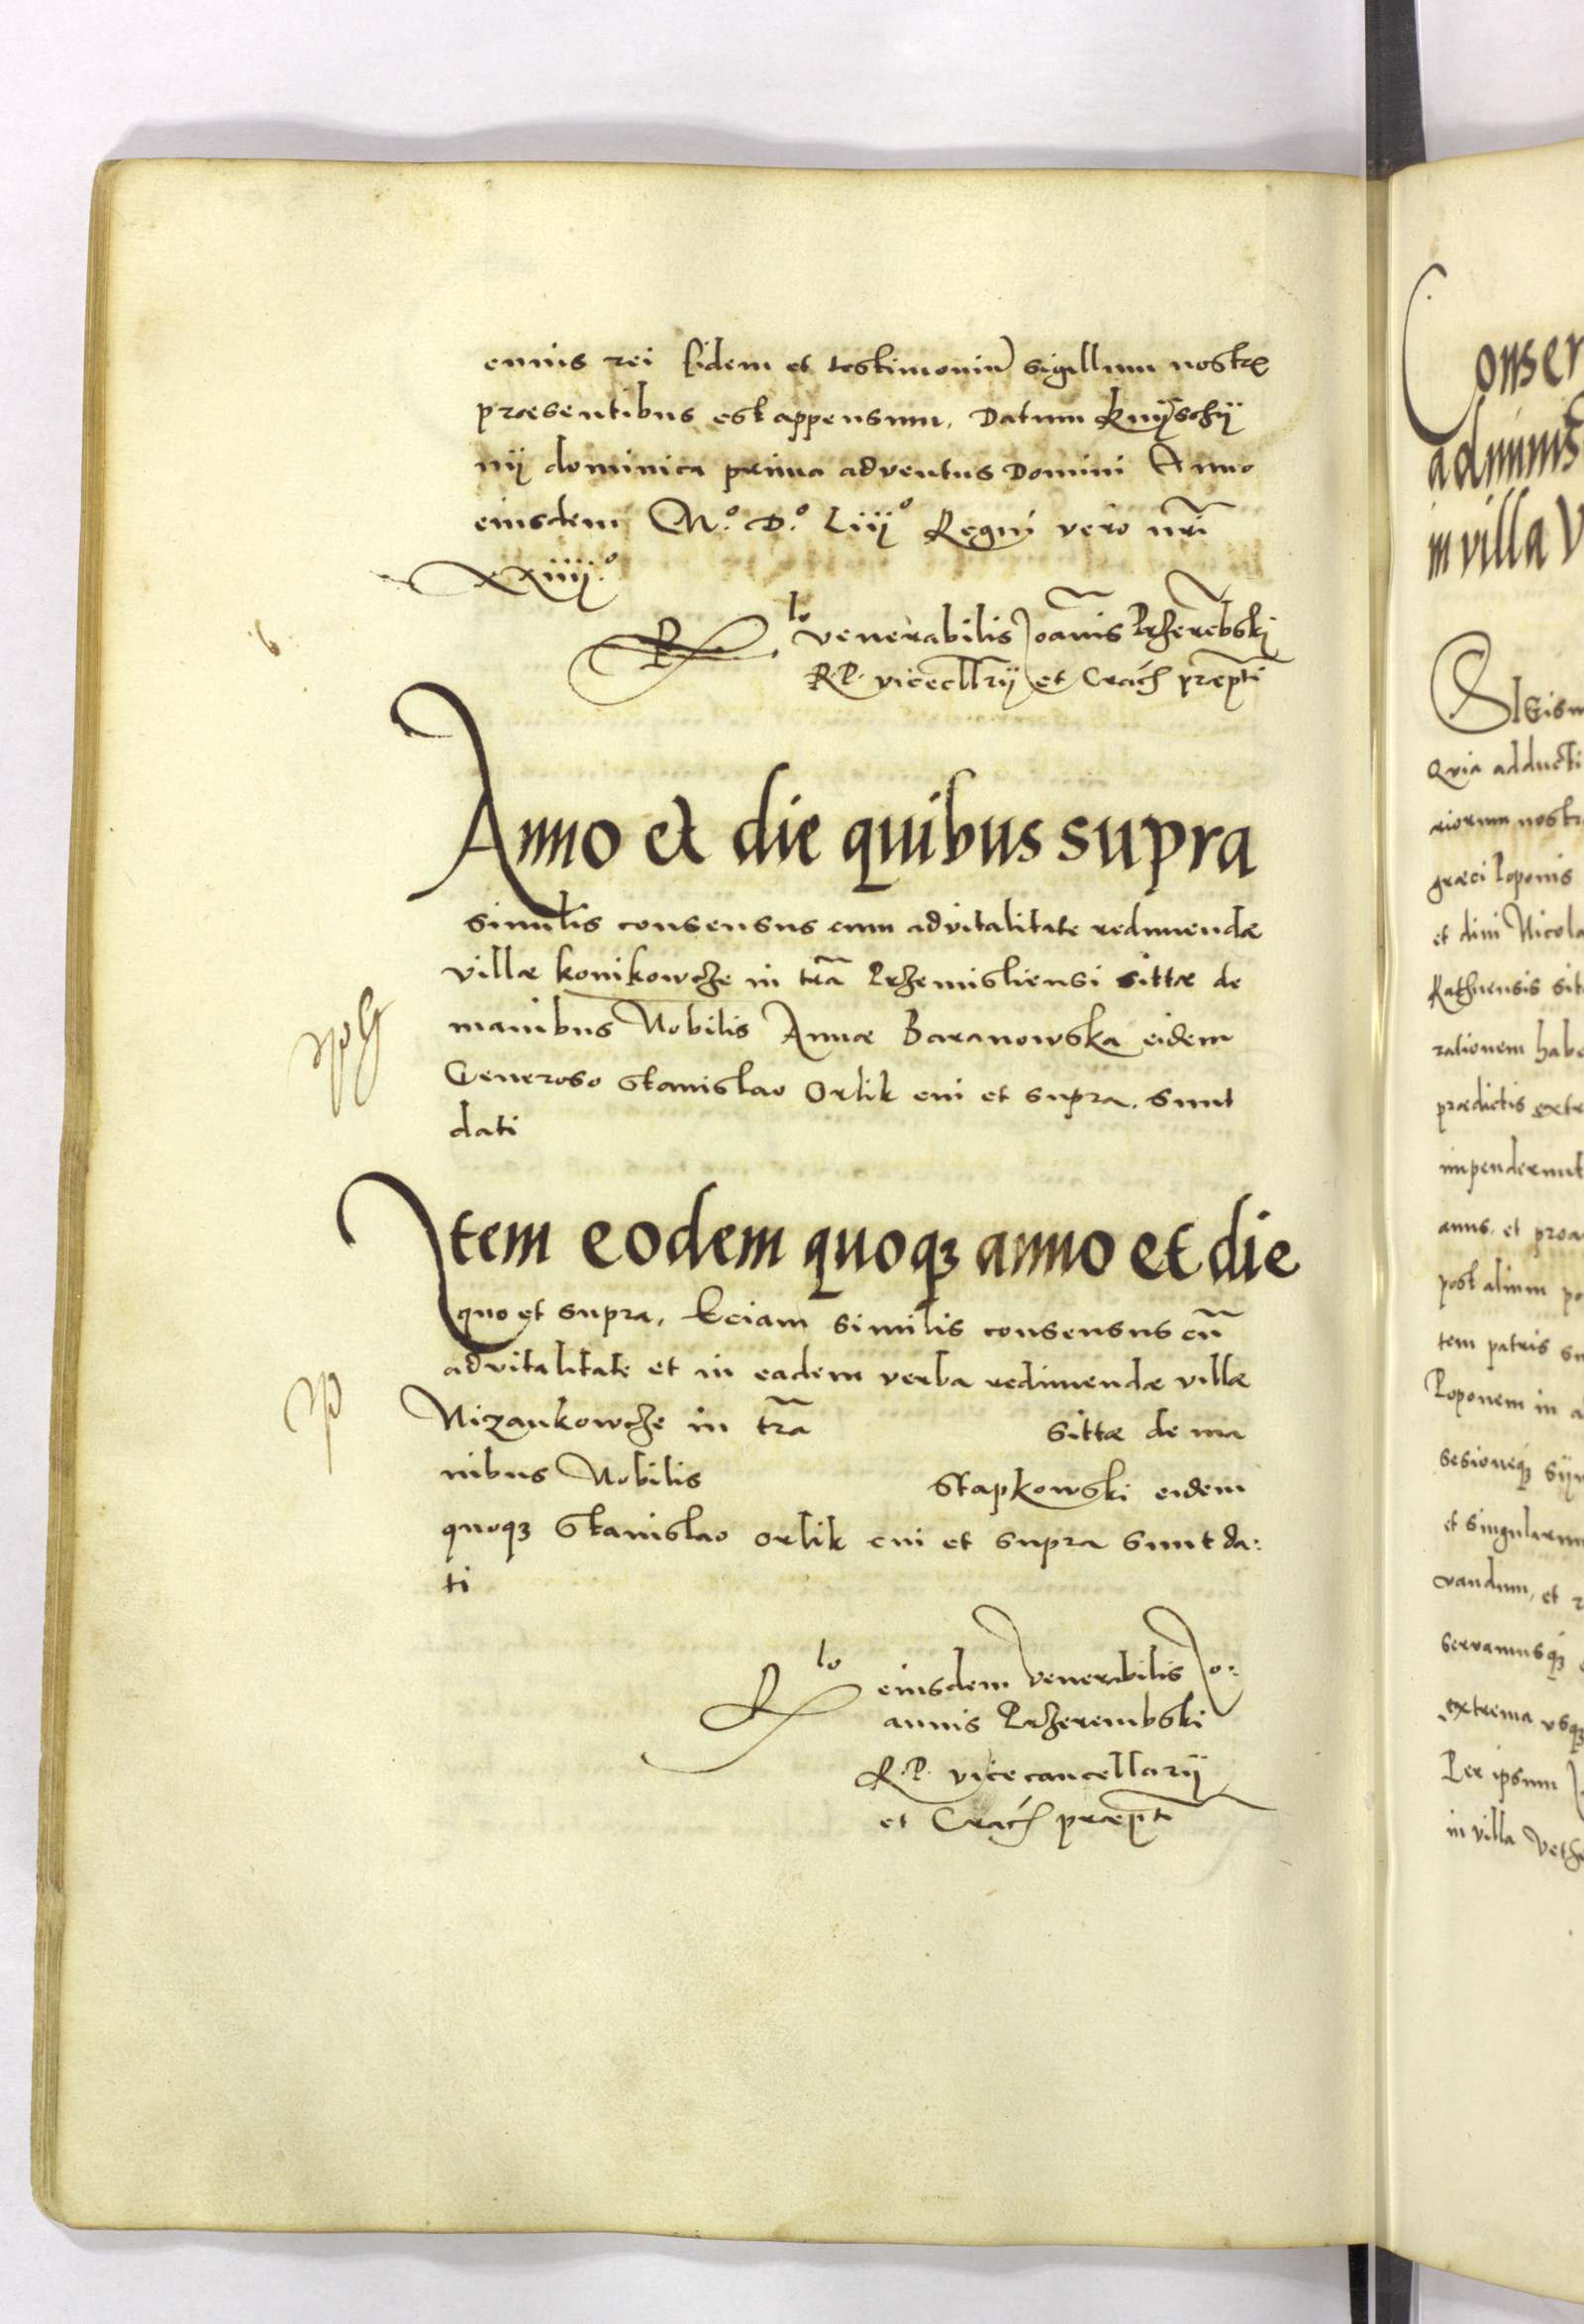 cuius rei fidem et testimoniũ sigillum nostrȩ
præsentibus est appensum. Datum Knÿschÿ
nij dominica prima adventus Domini Anno
eiusdem M.º D.º Liij.º Regni vero nr̃i
XXiiij.º
Rlo venerabilis Joãnis Przerẽbski
R. P. vicecllrij et Crač præpti
Anno et die quibus supra
similis consensus cum advitalitate redimendæ
villæ konikowcze in tr̃a Przemisliensi sittæ de
manibus Nobilis Annæ Baranowska eidem
Generoso Stanislao Orlik cui et supra. sunt
dati
Item eodem quoqȝ anno et die
quo et supra, Eciam similis consensus cũ
advitalitate et in eadem verba redimendæ villæ
Nizankowcze in tr̃a sittæ de ma
nibus Nobilis Stapkowski eidem
quoqȝ Stanislao orlik cui et supra sunt da:
ti
Rlo eiusdem venerabilis Jo:
annis Przerembski
R. P. vicecancellarij
et Crač præpti
onser
adminis
in villa V
SIGism
Qvia adducti
riorum nostr
græci Poponis
et divi Nicola
Rathnensis sit
rationem habe
prædictis extr
impenderunt
annus et proa
post alium po
tem patris su
Poponem in a
sesioneqȝ
et singularum
vandum, et
servamusqȝ
extrema vsqȝ
Per ipsum J
in villa Veth